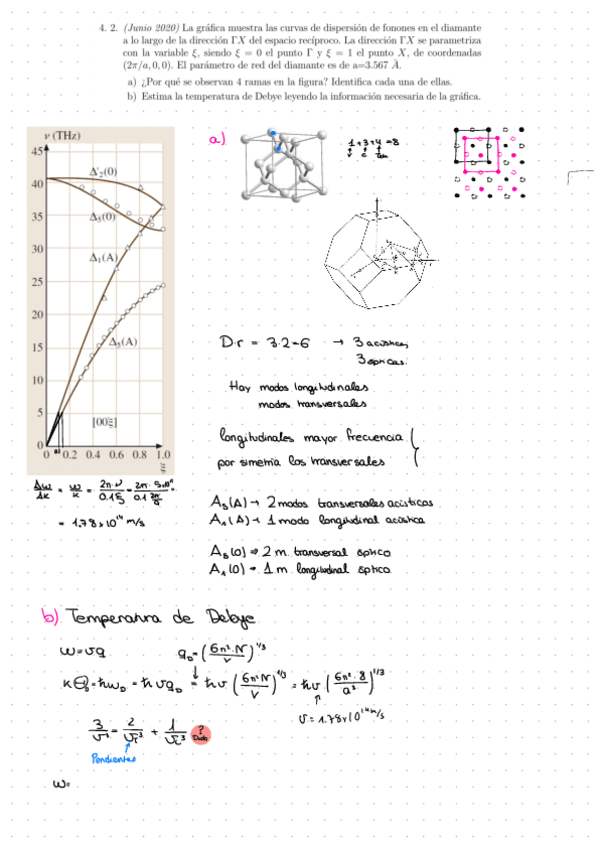 4. 2. (Junio 2020) La gráfica muestra las curvas de dispersión de fonones en el diamante
a lo largo de la dirección ΓX del espacio recíproco. La dirección ΓX se parametriza
con la variable ξ, siendo ξ = 0 el punto Γ y ξ = 1 el punto X, de coordenadas
(2π/a, 0, 0). El parámetro de red del diamante es de a=3.567 Å.
a) ¿Por qué se observan 4 ramas en la figura? Identifica cada una de ellas.
b) Estima la temperatura de Debye leyendo la información necesaria de la gráfica.
ν (THz)
45
40
35
30
25
20
15
10
5
0
Δ'₂(0)
Δ₅(0)
Δ₁(A)
Δ₅(A)
[00ξ]
0 0.2 0.4 0.6 0.8 1.0
a)
1+3+4=8
D·r = 3·2=6 → 3 acústicas,
3 ópticas.
Hay modos longitudinales
modos transversales
longitudinales mayor frecuencia
por simetría los transversales
A₅(A) → 2 modos transversales acústicos
A₁(A) → 1 modo longitudinal acústica
A₅(0) → 2 m. transversal óptico
A₁(0) → 1 m. longitudinal óptico.
Δω/Δk = ω/k = 2π·ν/0.1ξ =
= 1.78×10¹⁴ m/s
b) Temperatura de Debye
ω=vq q_D=(6π²·N/V)^1/3
kθ_D=ħω_D = ħvq_D = ħv(6π²N/V)^1/3 = ħv(6π²·8/a³)^1/3
v=1.78×10¹⁴ m/s
3/v³ = 2/v_t³ + 1/v_l³ ? Duda
Pendientes
ω=